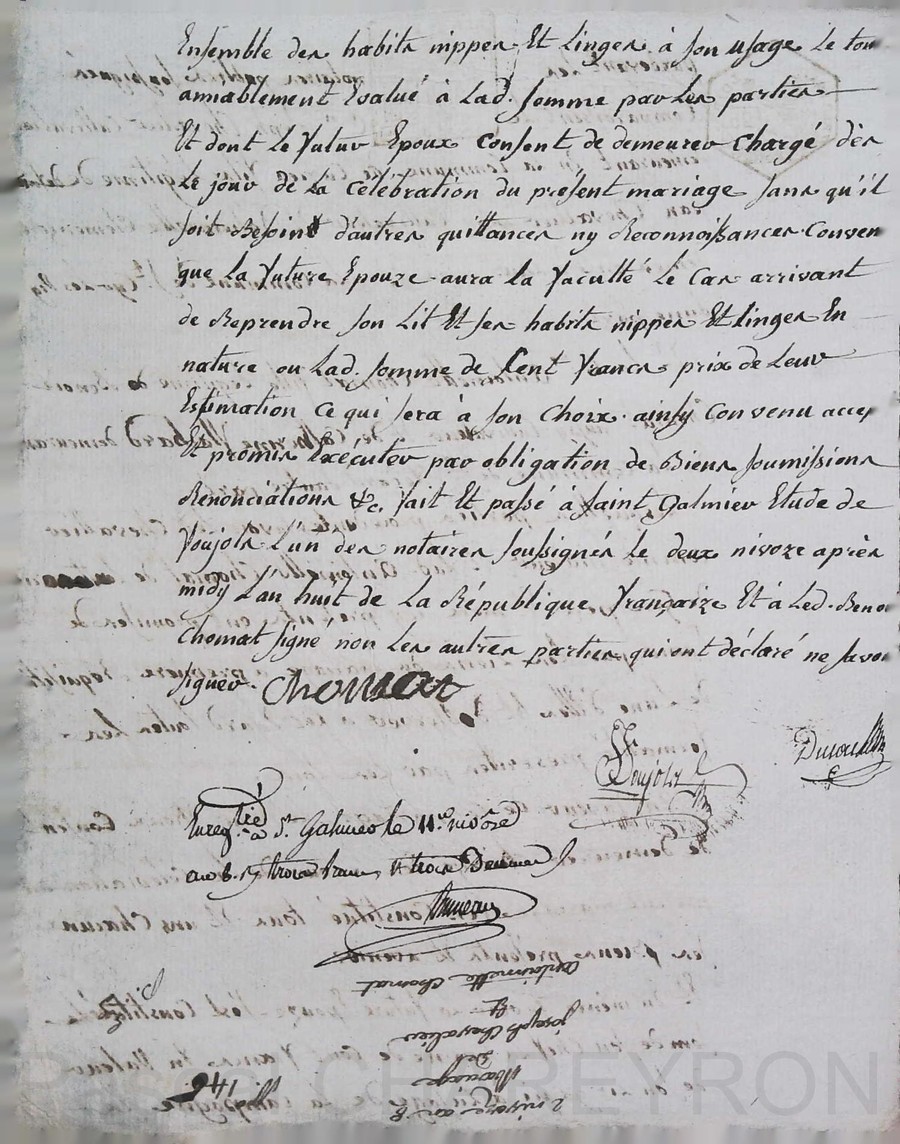 Ensemble des habits nippes Et linges à son usage Le tou
amiablement Evalué à Lad. somme par Les parties
Et dont Le futur Epoux Consent de demeurer chargé dès
Le jour de La célébration du présent mariage sans qu'il
soit Besoint d'autres quittances ny Reconnoissances Conven
que La future Epouze aura la faculté Le Cas arrivant
de Reprendre son Lit Et ses habits nippes Et linges En
nature ou Lad. somme de Cent francs prix de Leur
Estimation Ce qui sera à son Choix. ainsy Convenu accep
Et promis Exécuter par obligation de Biens soumissions
Renonciations &c. fait Et passé à saint Galmier Etude de
Foujols L'un des notaires soussignés Le deux nivoze après
midy L'an huit de La République françaize Et à Led. Beno
Chomat signé non Les autres parties qui ont déclaré ne savoi
signer. Chomat
Foujols
Enregtré à St. Galmier le 11e. nivoze
an 8. trois francs
Antoinette Chomat
Et
joseph Chevalier
De
Mariage
2 nivoze an 8
CHAREYRON